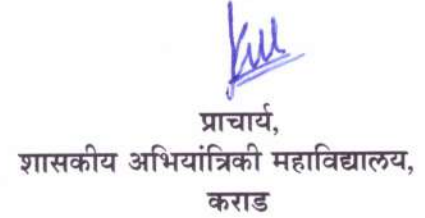 प्राचार्य,
शासकीय अभियांत्रिकी महाविद्यालय,
कराड